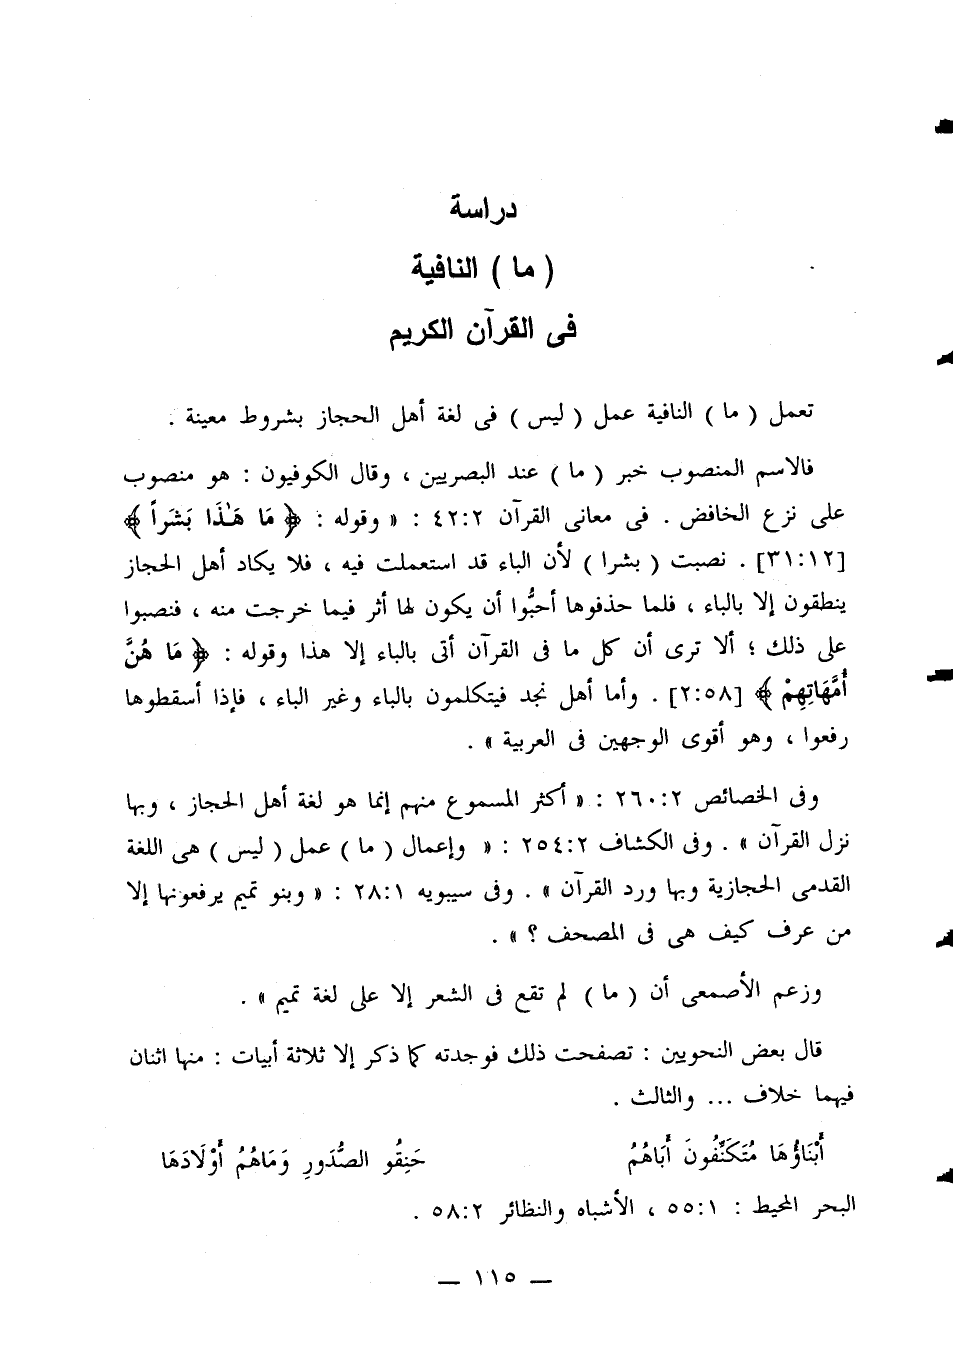 دراسة
( ما ) النافية
فى القرآن الكريم
تعمل ( ما ) النافية عمل ( ليس ) فى لغة أهل الحجاز بشروط معينة .
فالاسم المنصوب خبر ( ما ) عند البصريين ، وقال الكوفيون : هو منصوب
على نزع الخافض . فى معانى القرآن ٤٢:٢ : « وقوله : ﴿ مَا هَـٰذَا بَشَراً ﴾
[٣١:١٢] . نصبت ( بشرا ) لأن الباء قد استعملت فيه ، فلا يكاد أهل الحجاز
ينطقون إلا بالباء ، فلما حذفوها أحبُّوا أن يكون لها أثر فيما خرجت منه ، فنصبوا
على ذلك ؛ ألا ترى أن كل ما فى القرآن أتى بالباء إلا هذا وقوله : ﴿ مَا هُنَّ
أُمَّهَاتِهِمْ ﴾ [٢:٥٨] . وأما أهل نجد فيتكلمون بالباء وغير الباء ، فإذا أسقطوها
رفعوا ، وهو أقوى الوجهين فى العربية » .
وفى الخصائص ٢٦٠:٢ : « أكثر المسموع منهم إنما هو لغة أهل الحجاز ، وبها
نزل القرآن » . وفى الكشاف ٢٥٤:٢ : « وإعمال ( ما ) عمل ( ليس ) هى اللغة
القدمى الحجازية وبها ورد القرآن » . وفى سيبويه ٢٨:١ : « وبنو تميم يرفعونها إلا
من عرف كيف هى فى المصحف ؟ » .
وزعم الأصمعى أن ( ما ) لم تقع فى الشعر إلا على لغة تميم » .
قال بعض النحويين : تصفحت ذلك فوجدته كما ذكر إلا ثلاثة أبيات : منها اثنان
فيهما خلاف ... والثالث .
أَبْنَاؤُهَا مُتَكَنِّفُونَ أَبَاهُمُ حَنِقُو الصُّدَورِ وَمَاهُمُ أَوْلَادَهَا
البحر المحيط : ٥٥:١ ، الأشباه والنظائر ٥٨:٢ .
— ١١٥ —